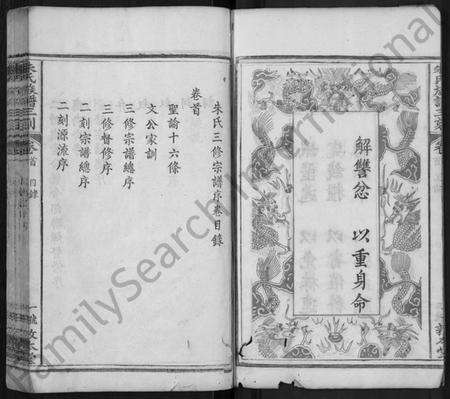 解讐忿 以重身命
朱氏三修宗譜序卷目錄
卷首
聖諭十六條
文公家訓
三修宗譜總序
三修督修序
二刻宗譜總序
二刻源流序
朱氏族譜
卷首 目錄
敦本堂
FamilySearch International